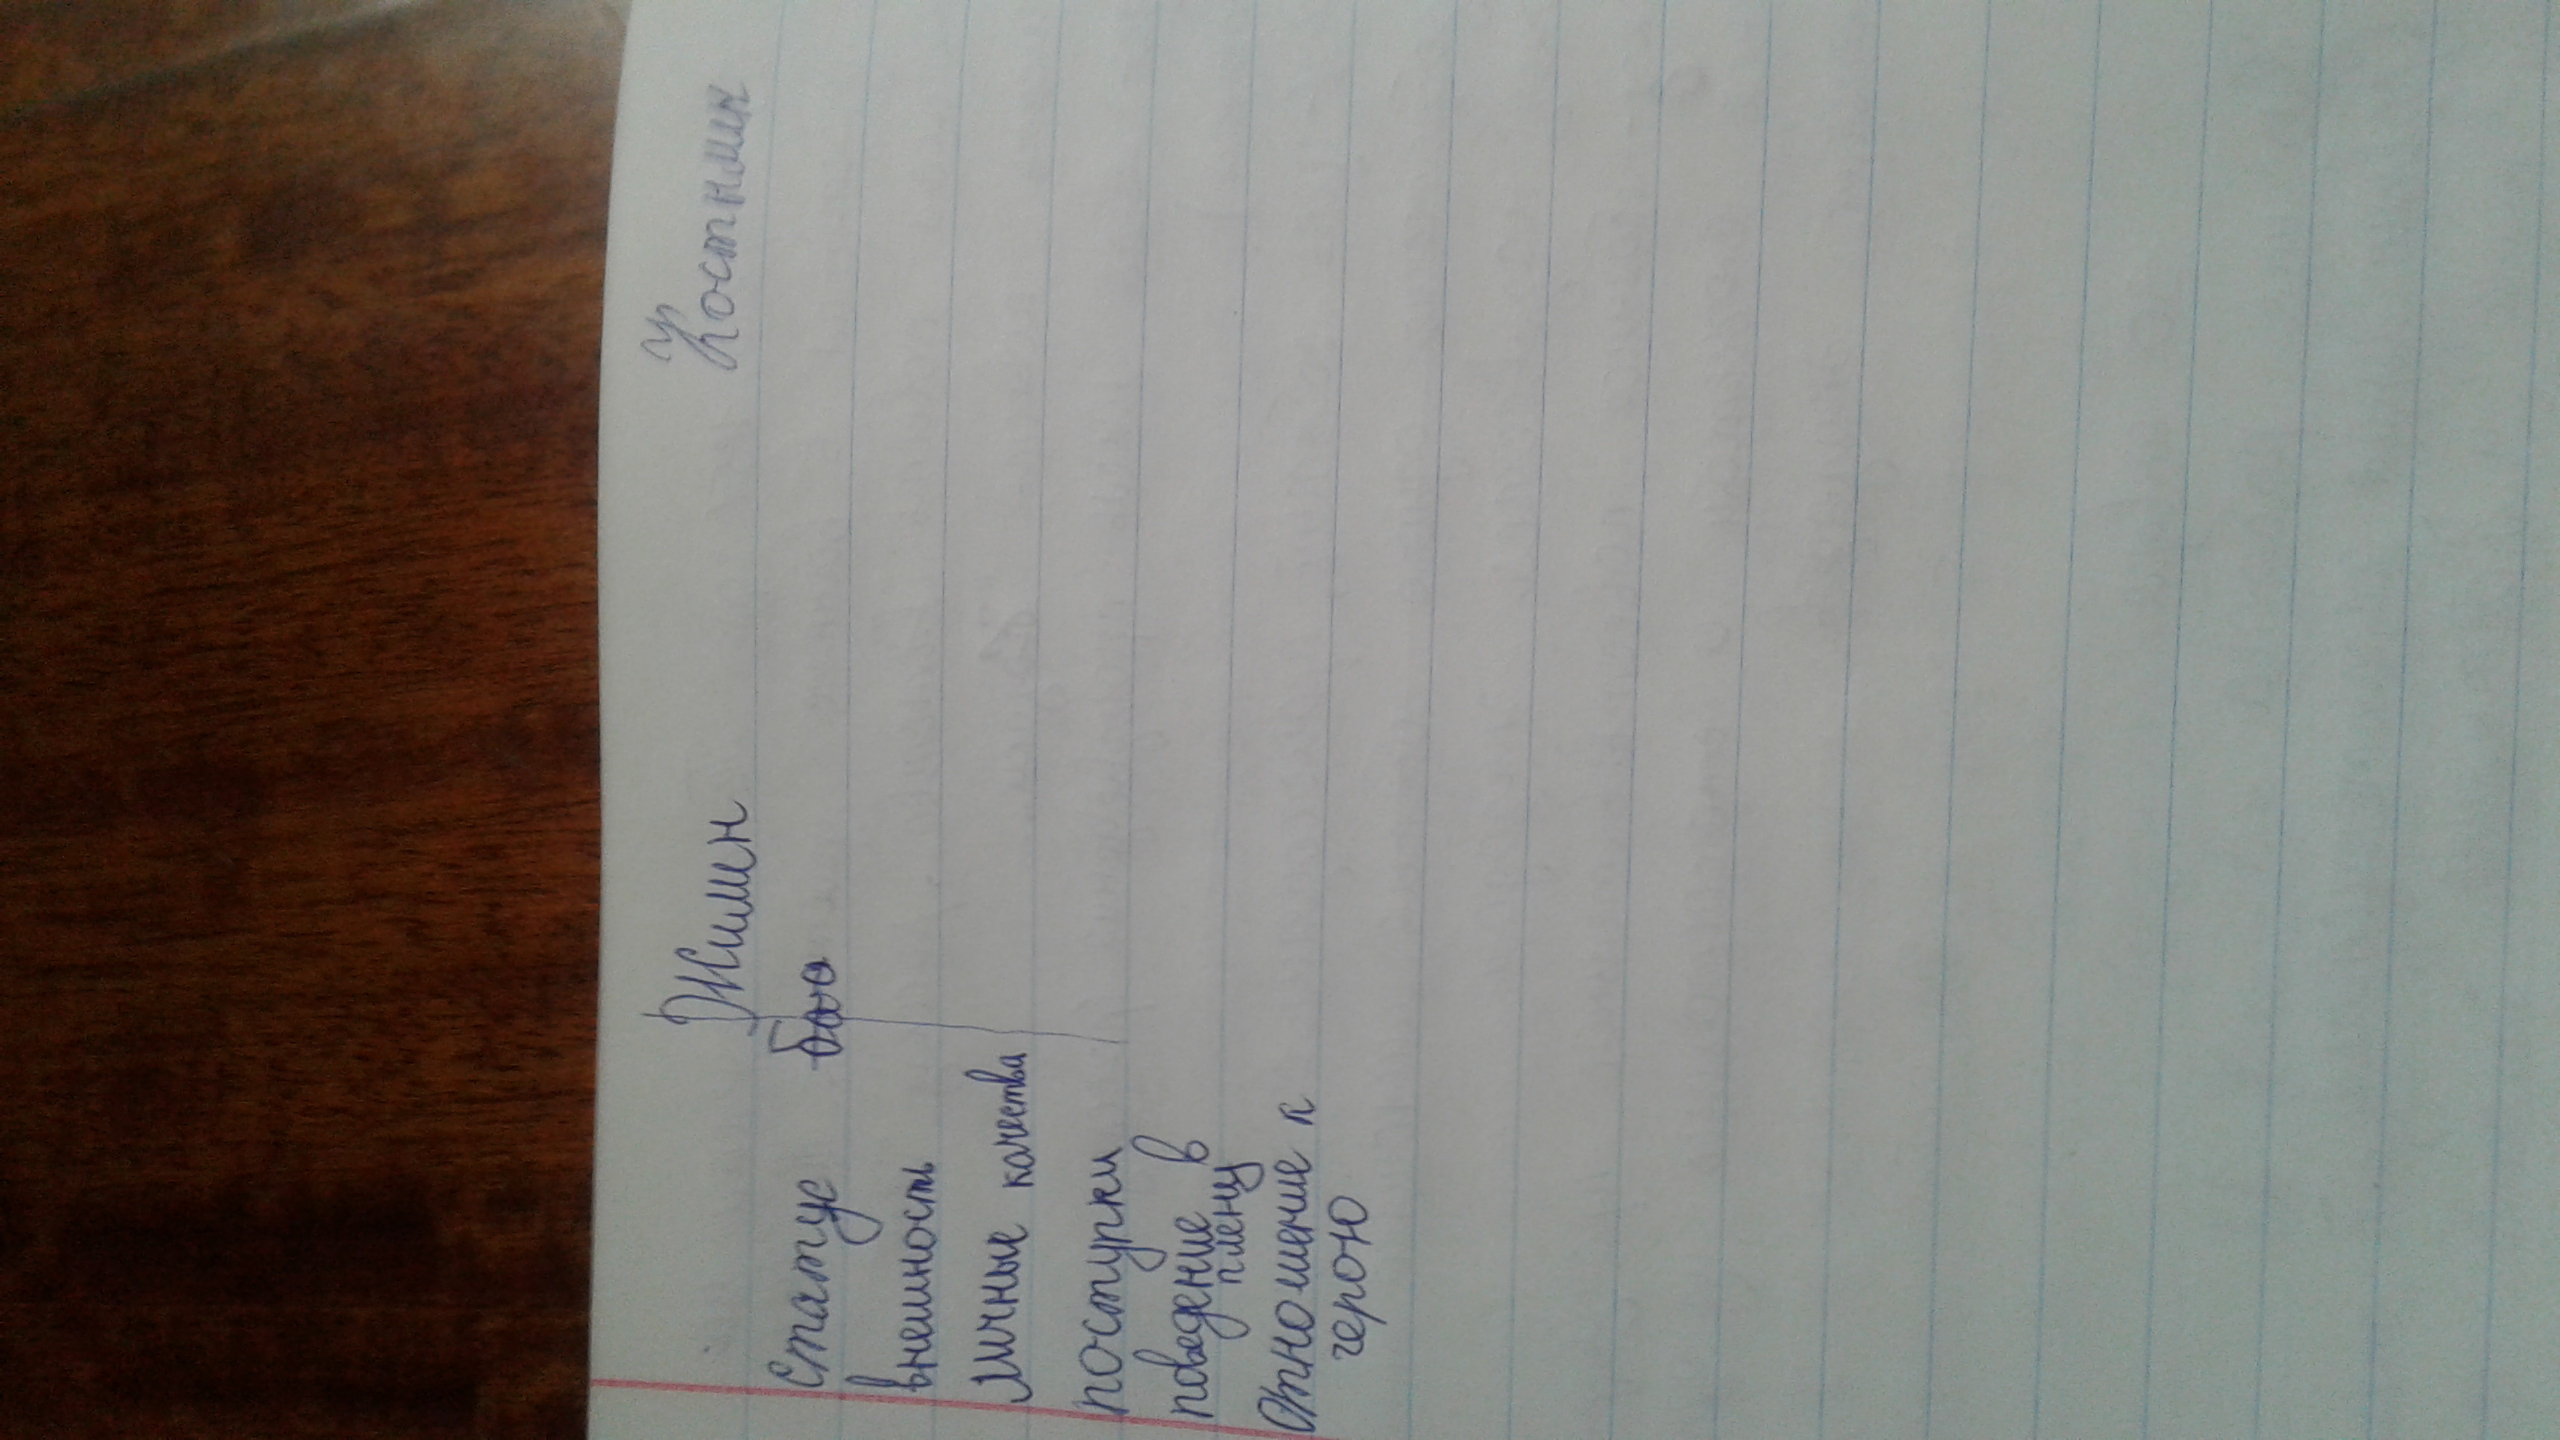 Жилин Костылин
статус
внешность
личные качества
поступки
поведение в
плену
Отношение к
герою